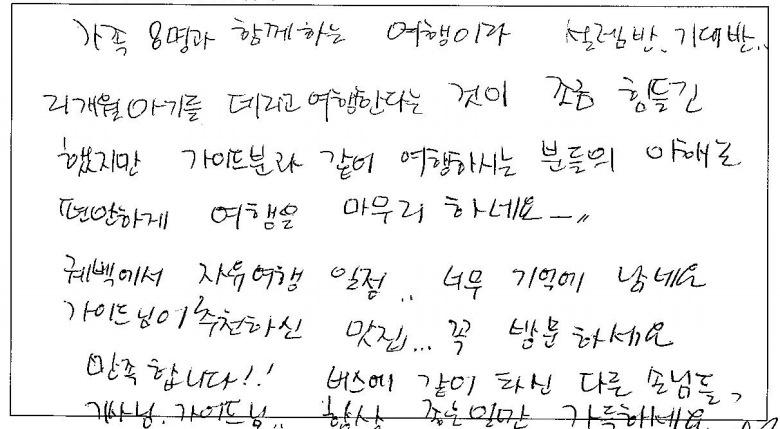 가족 8명과 함께하는 여행이라 설렘반. 기대반..
21개월아기를 데리고 여행한다는 것이 조금 힘들긴
했지만 가이드분과 같이 여행하시는 분들의 이해로
편안하게 여행을 마무리 하네요~,,
퀘백에서 자유여행 일정.. 너무 기억에 남네요
가이드님이 추천하신 맛집... 꼭 방문하세요
만족합니다!! 버스에 같이 타신 다른 손님들,
기사님. 가이드님.. 항상 좋은일만 가득하세요